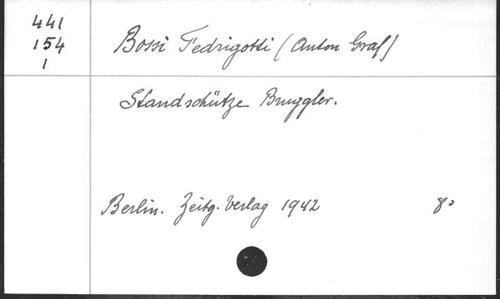 441
154
1
Bossi Fedrigotti (Anton Graf)
Standschütze Bruggler.
Berlin. Zeitg. Verlag 1942 8°